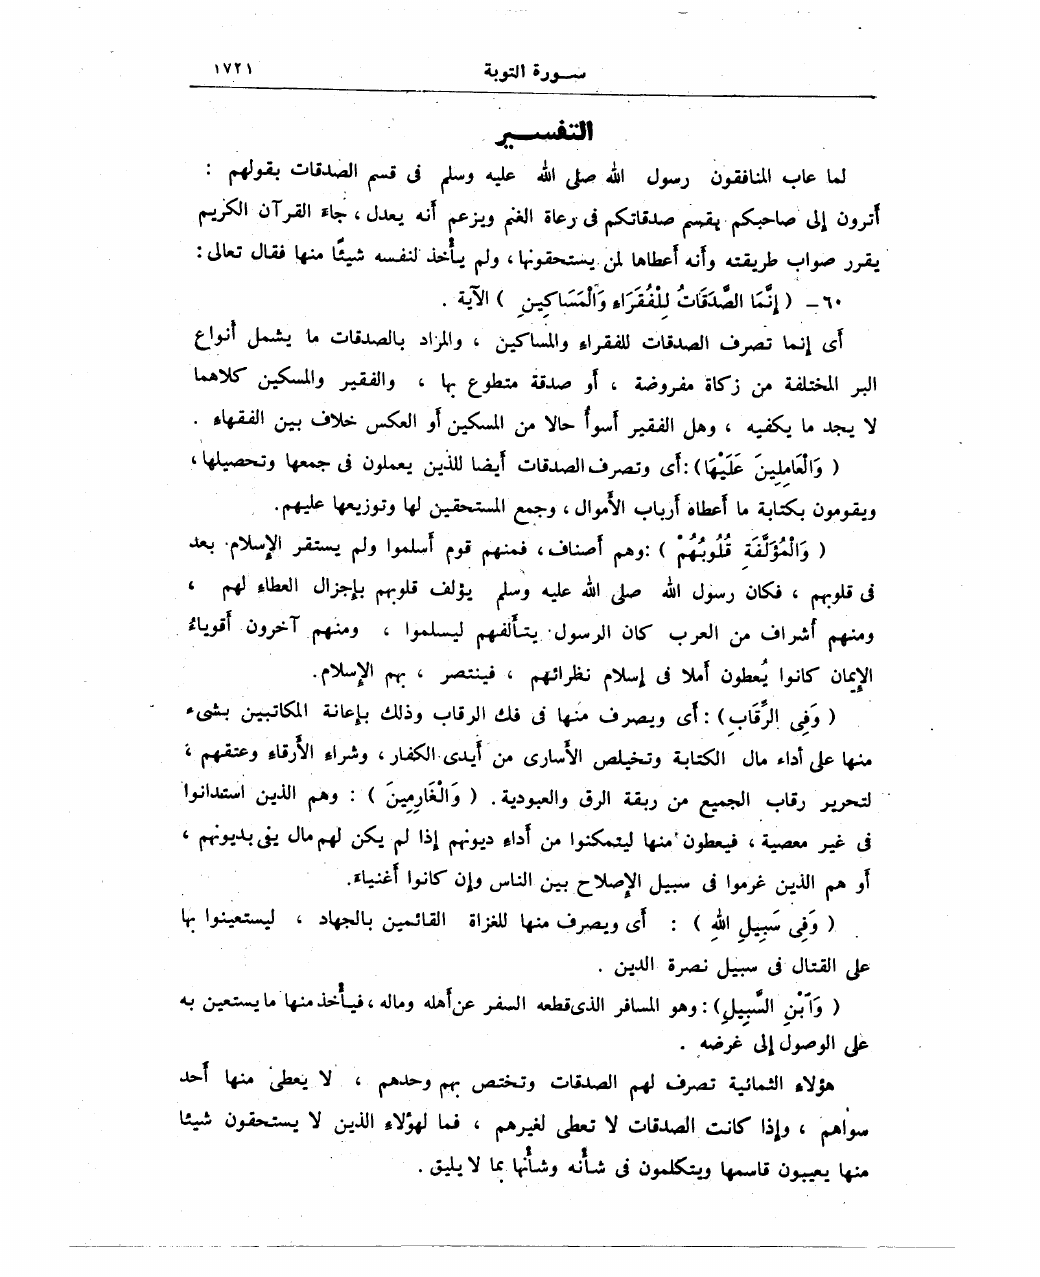 سورة التوبة ١٧٢١
التفسير
لما عاب المنافقون رسول الله صلى الله عليه وسلم فى قسم الصدقات بقولهم :
أترون إلى صاحبكم يقسم صدقاتكم فى رعاة الغنم ويزعم أنه يعدل ، جاء القرآن الكريم
يقرر صواب طريقته وأنه أعطاها لمن يستحقونها ، ولم يأخذ لنفسه شيئًا منها فقال تعالى :
٦٠ – ( إِنَّمَا الصَّدَقَاتُ لِلْفُقَرَاءِ وَالْمَسَاكِينِ ) الآية .
أى إنما تصرف الصدقات للفقراء والمساكين ، والمراد بالصدقات ما يشمل أنواع
البر المختلفة من زكاة مفروضة ، أو صدقة متطوع بها ، والفقير والمسكين كلاهما
لا يجد ما يكفيه ، وهل الفقير أسوأ حالا من المسكين أو العكس خلاف بين الفقهاء .
( وَالْعَامِلِينَ عَلَيْهَا ) : أى وتصرف الصدقات أيضا للذين يعملون فى جمعها وتحصيلها ،
ويقومون بكتابة ما أعطاه أرباب الأموال ، وجمع المستحقين لها وتوزيعها عليهم .
( وَالْمُؤَلَّفَةِ قُلُوبُهُمْ ) : وهم أصناف ، فمنهم قوم أسلموا ولم يستقر الإسلام بعد
فى قلوبهم ، فكان رسول الله صلى الله عليه وسلم يؤلف قلوبهم بإجزال العطاء لهم ،
ومنهم أشراف من العرب كان الرسول يتألفهم ليسلموا ، ومنهم آخرون أقوياءُ
الإيمان كانوا يُعطون أملا فى إسلام نظرائهم ، فينتصر ، بهم الإسلام .
( وَفِى الرِّقَابِ ) : أى ويصرف منها فى فك الرقاب وذلك بإعانة المكاتبين بشىء
منها على أداء مال الكتابة وتخيلص الأسارى من أيدى الكفار ، وشراء الأرقاء وعتقهم ،
لتحرير رقاب الجميع من ربقة الرق والعبودية . ( وَالْغَارِمِينَ ) : وهم الذين استدانوا
فى غير معصية ، فيعطون منها ليتمكنوا من أداء ديونهم إذا لم يكن لهم مال يفى بديونهم ،
أو هم الذين غرموا فى سبيل الإصلاح بين الناس وإن كانوا أغنياء .
( وَفِى سَبِيلِ اللهِ ) : أى ويصرف منها للغزاة القائمين بالجهاد ، ليستعينوا بها
على القتال فى سبيل نصرة الدين .
( وَابْنِ السَّبِيلِ ) : وهو المسافر الذى قطعه السفر عن أهله وماله ، فيأخذ منها ما يستعين به
على الوصول إلى غرضه .
هؤلاء الثمانية تصرف لهم الصدقات وتختص بهم وحدهم ، لا يعطى منها أحد
سواهم ، وإذا كانت الصدقات لا تعطى لغيرهم ، فما لهؤلاء الذين لا يستحقون شيئا
منها يعيبون قاسمها ويتكلمون فى شأنه وشأنها بما لا يليق .